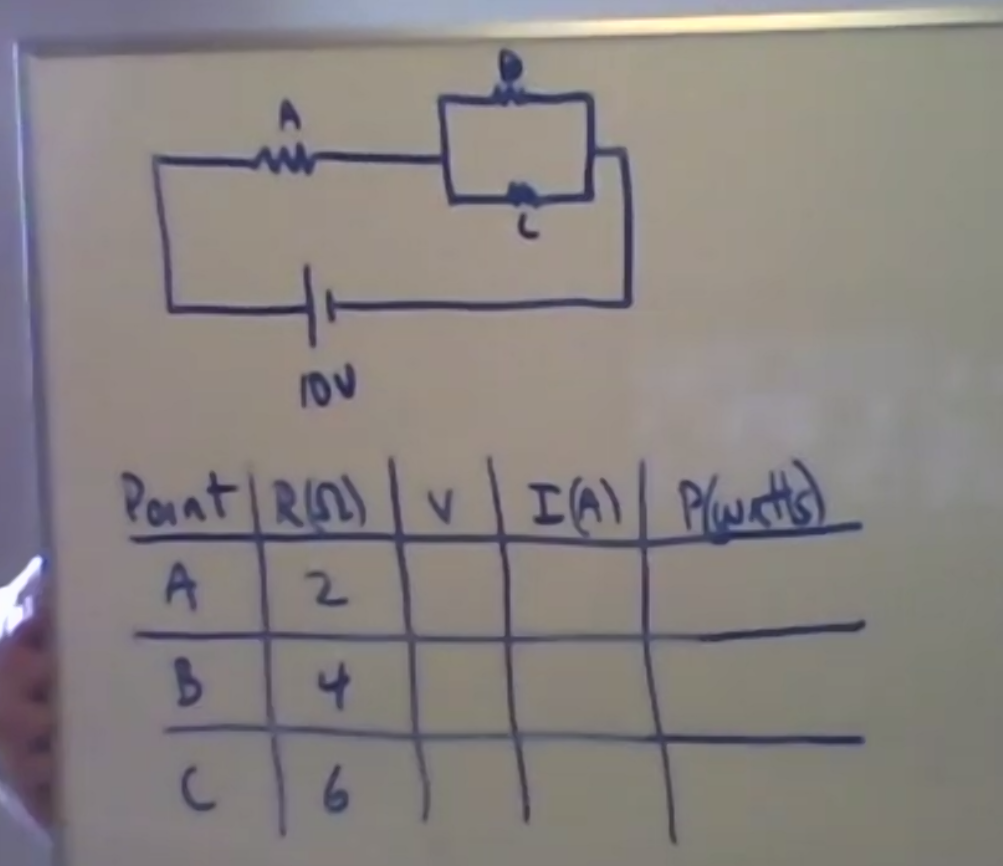 B
A
C
10V
Point R(Ω) V I(A) P(watts)
A 2
B 4
C 6